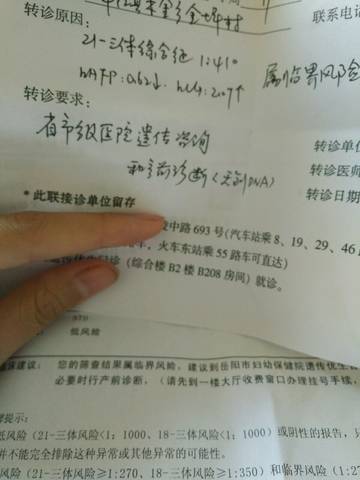 转诊原因:
联系电话
21-三体综合征 1:410
属临界风险
转诊要求:
省市级医院遗传咨询
和产前诊断(无创DNA)
转诊单位
转诊医师
转诊日期
* 此联接诊单位留存
中路 693 号(汽车站乘 8、19、29、46
车,火车东站乘 55 路车可直达)
(综合楼 B2 楼 B208 房间)就诊。
低风险
建议: 您的筛查结果属临界风险,建议到岳阳市妇幼保健院遗传优生
必要时行产前诊断,(请先到一楼大厅收费窗口办理挂号手续,
提示:
低风险(21-三体风险<1:1000、18-三体风险<1:1000)或阴性的报告,只
并不能完全排除这种异常或其他异常的可能性。
风险(21-三体风险≥1:270、18-三体风险≥1:350)和临界风险(1:27